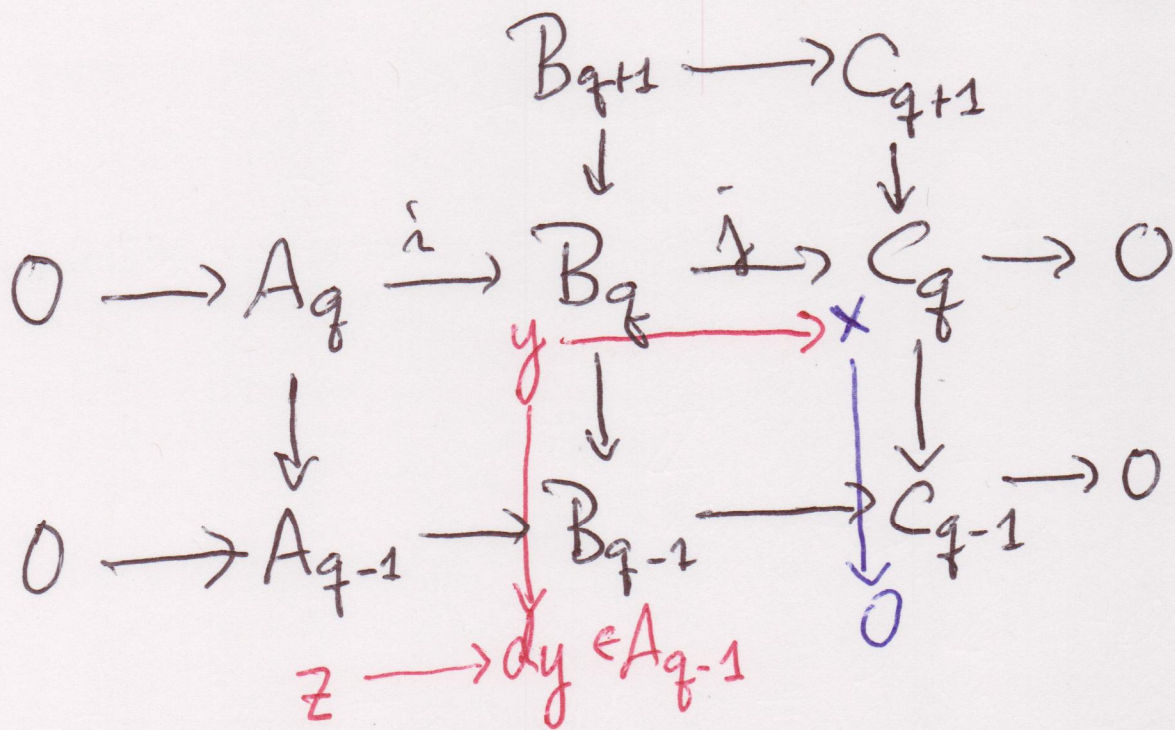 B_{q+1} → C_{q+1}
↓ ↓
0 → A_q →^{i} B_q →^{j} C_q → 0
y → x
↓ ↓ ↓
0 → A_{q-1} → B_{q-1} → C_{q-1} → 0
0
z → dy ∈ A_{q-1}